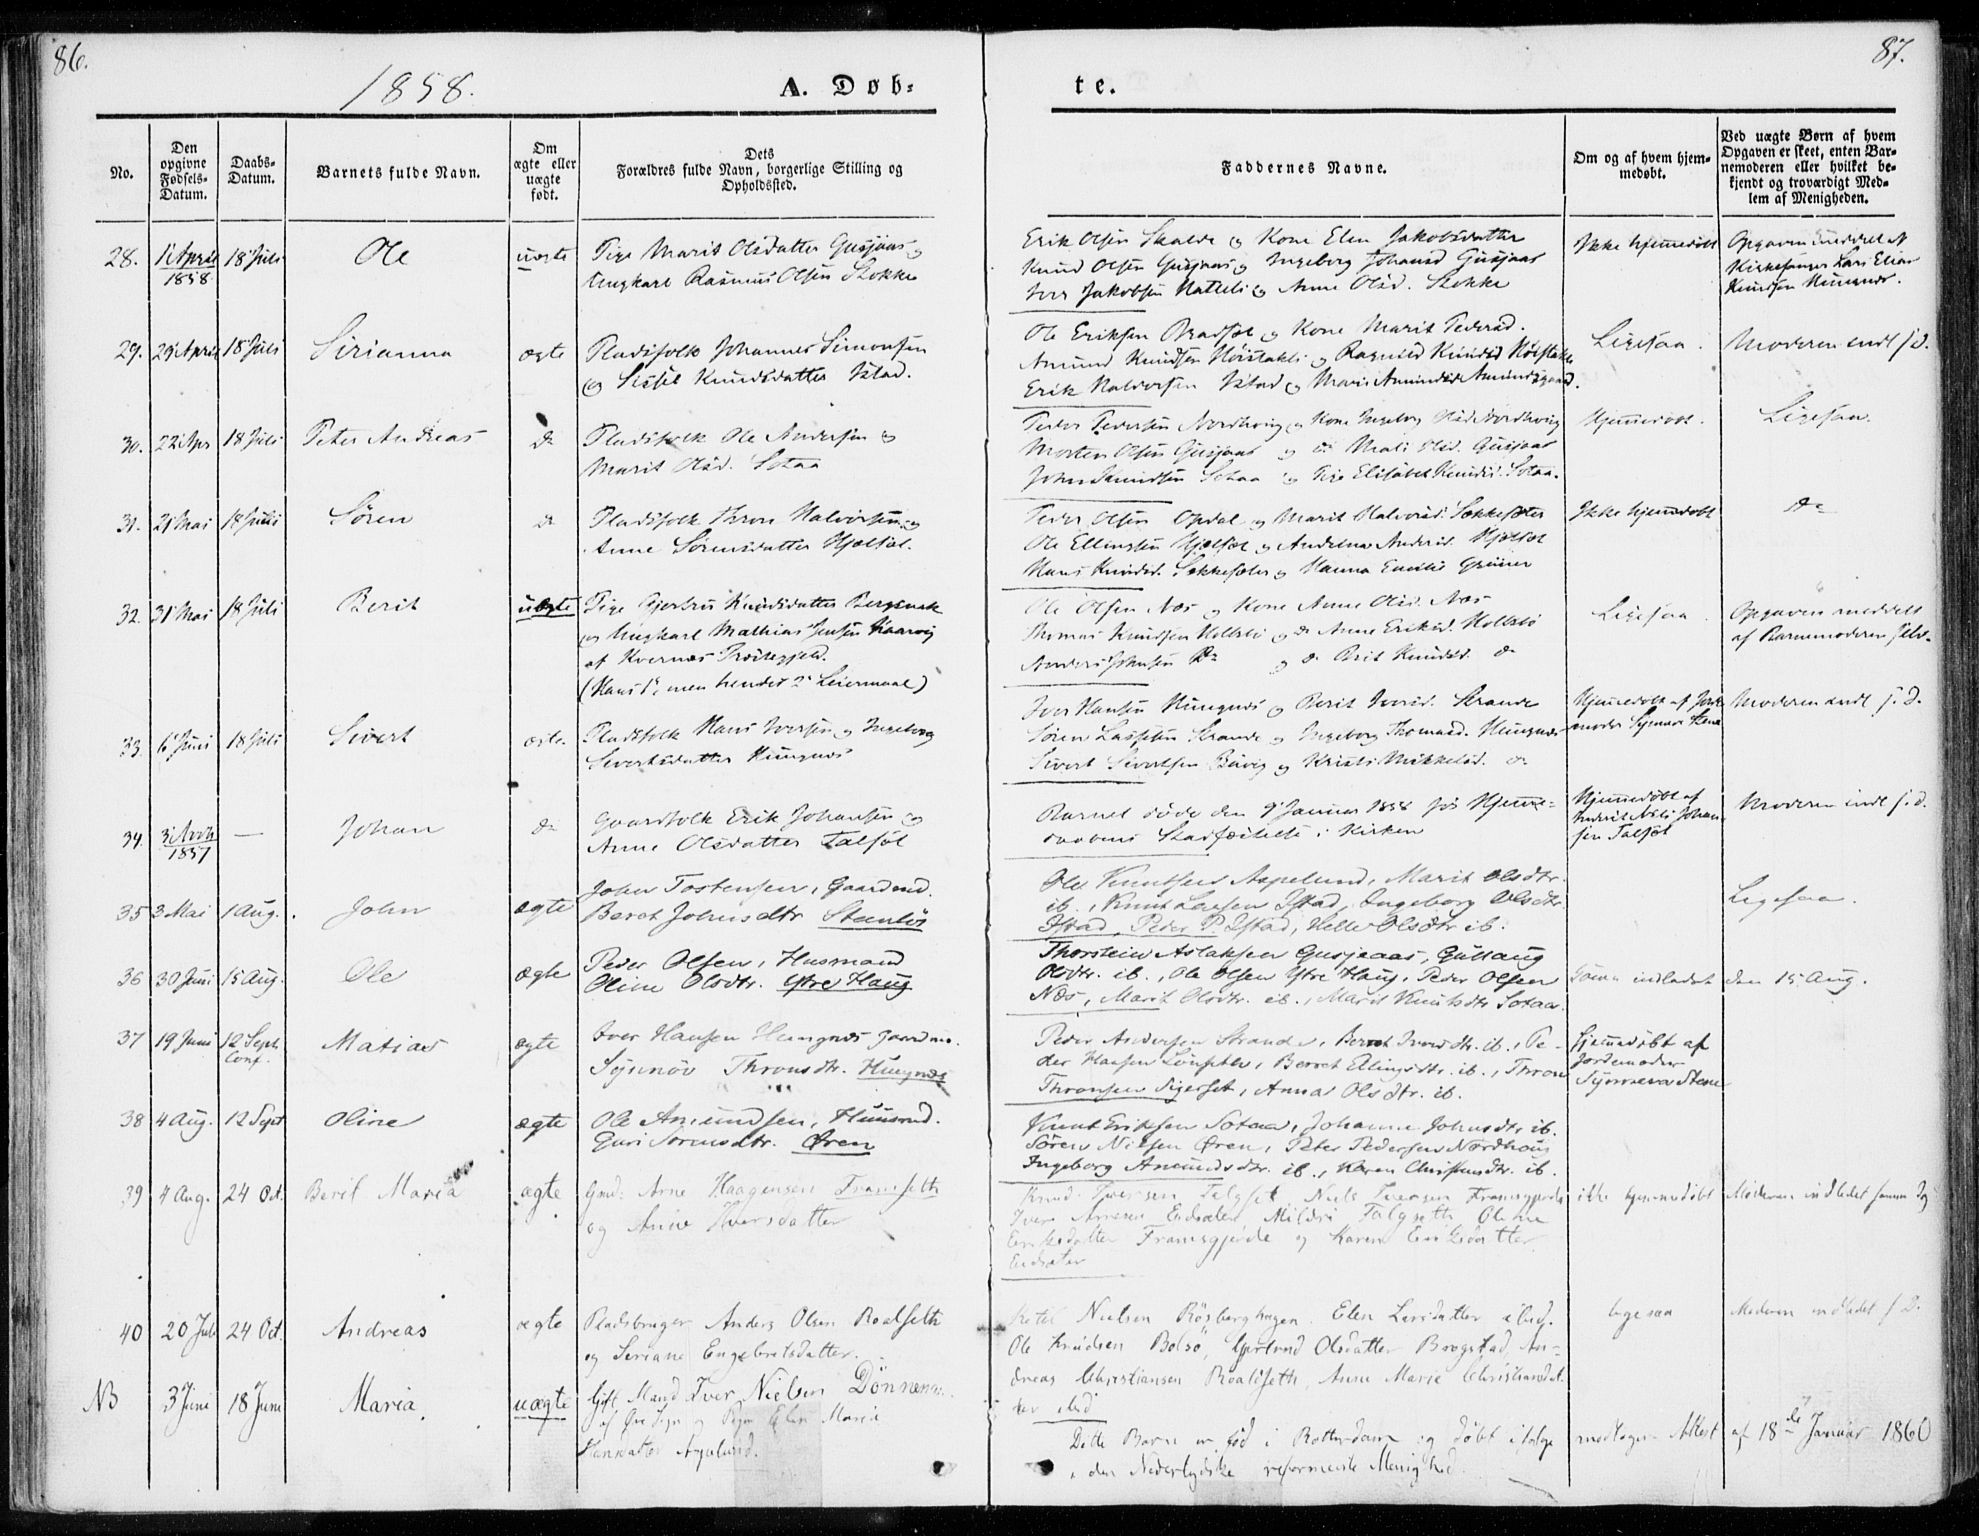 86.
87.
1858.
A. Døb-
te.
No.
Den opgivne Fødsels-Datum.
Daabs-Datum.
Barnets fulde Navn.
Om ægte eller uægte født.
Dets Forældres fulde Navn, borgerlige Stilling og Opholdssted.
Faddernes Navne.
Om og af hvem hjem-medøbt.
Ved uægte Børn af hvem Opgaven er skeet, enten Bar-nemoderen eller hvilket be-kjendt og troværdigt Med-lem af Menigheden.
28. 1 April 1858 18 Juli Ole uægte Pige Marit Olsdatter Gusjaas og
Ungkarl Rasmus Olsen Stokke
Erik Olsen Skalde og Kone Elen Jakobsdatter
Knud Olsen Gusjaas og Ingeborg Johansd Gusjaas
Iver Jakobsen Natteli og Anne Olsd. Stokke
Ikke hjemmedøbt
Opgaven meddelt af
Kirkesanger Lars Elias
Knudsen
29. 29 April 18 Juli Sirianna ægte Pladsfolk Johannes Simonsen
og Sissel Knudsdatter Istad.
Ole Eriksen og Kone Marit Pedersd.
Amund Knudsen Høistakli og Ragnild Knudsd Høistakli
Erik Halvorsen Istad og Marit Amundsd Amundsgaard.
Ligesaa. Moderen indl s. D.
30. 22 Apr 18 Juli Peter Andreas do Pladsfolk Ole Andersen og
Marit Olsd. Sotaa
Peder Pedersen Nordhoug og Kone Ingeborg Olsd Nordhoug
Morten Olsen Gusjaas og do Mali Olsd. Gusjaas
John Knudsen Sotaa og Pige Elisabet Knudsd. Sotaa.
Hjemmedøbt. Ligesaa.
31. 21 Mai 18 Juli Sören do Pladsfolk Thron Halvorsen og
Anne Sörensdatter Hjelset.
Peder Olsen Opdal og Marit Halvorsd. Sekkesæter
Ole Ellingsen Hjelset og Andrina Andersd. Hjelset
Hans Knudsd. Sekkesæter og Hanna Emilie Grüner
Ikke hjemmedøbt do
32. 31 Mai 18 Juli Berit uægte Pige Gjertrud Knudsdatter
og Ungkarl Mathias Jensen
af Kvernæs Præstegjeld.
(Hans 1ste, men hendes 2det Leiermaal)
Ole Olsen Næs og Kone Anne Olsd. Næs
Thomas Knudsen Holtslö og do Anne Eriksd. Holtslö
Anders Johnsen do og do Berit Knudsd. do
Ligesaa. Opgaven meddelt
af Barnemoderen selv.
33. 6 Juni 18 Juli Sivert ægte Pladsfolk Hans Iversen og Ingeborg
Sivertsdatter Hungnæs
Iver Hansen Hungnæs og Berit Iversd. Strande
Sören Lassesen Strande og Ingeborg Thomasd. Hungnæs
Sivert Sivertsen Bavig og Kristi Mikkelsd. do
Hjemmedøbt af Jorde-
moder Synnøve Stene
Moderen indl s. D.
34. 3 Novbr 1857 — Johan do Gaardfolk Erik Johansen og
Anne Olsdatter Talsöt
Barnet döde den 9 Januar 1858 før Hjemme-
daabens Stadfæstelse i Kirken
Hjemmedøbt af
Nils Johan-
sen Talsöt
Moderen indl s. d.
35 3 Mai 1 Aug. John ægte John Tostensen, Gaardmd.
Beret Johnsdtr Stenlös
Ole Knutsen Aspelund, Marit Olsdtr.
ib., Knut Larsen Istad, Ingeborg Olsdtr
Istad, Peder P. Istad, Helle Olsdtr ib.
Ligesaa.
36 30 Juni 15 Aug. Ole ægte Peder Olsen, Husmand
Oline Olsdtr. Ytre Haug
Thorstein Aslaksen Gusjeaas, Gullaug
Olsdtr. ib., Ole Olsen Ytre Haug, Peder Olsen
Næs, Marit Olsdtr. ib., Marit Knutsdtr Sotaa.
indledet den 15 Aug.
37 19 Juni 12 Sept. Conf. Matias ægte Iver Hansen Hungnæs gaardm.
Synnöv Thronsdtr. Hungnæs
Peder Andersen Strande, Berret Iversdtr. ib., Pe-
der Hansen Lönseter, Berret Ellingsdtr. ib., Thron
Thronsen Sigerset, Anna Olsdtr. ib.
hjemmedøbt af
Jordemoder
Synneva Stene
38 4 Aug. 12 Sept Oline ægte Ole Amundsen, Huusmd.
Guri Sörensdtr. Ören
Knut Eriksen Sotaa, Johanne Johnsdtr ib.
Sören Nilsen Ören, Peter Pedersen Nordhoug
Ingeborg Amundsdtr. ib., Karen Christensdtr. ib.
39 4 Aug. 24 Oct. Berit Maria ægte Gmd: Arne Haagensen Framseth
og Anne Iversdatter
Knud Iversen Talgset, Niels Iversen Framsgjerde
Iver Arnesen Eidsæter, Mildri Talgseth Oline
Eriksdatter Framsgjerde og Karen Eriksdatter
Eidsæter
ikke hjemmedøbt Moderen indledet samme Dag
40 20 Juli 24 Oct. Andreas ægte Pladsbruger Anders Olsen Roalseth
og Seriane Engebretsdatter.
Nielsen Rösberghagen. Elen Larsdatter ibid.
Ole Knudsen Bolsö, Gjertrud Olsdatter Brogstad, An-
dreas Christiansen Roaldseth, Anne Marie Christiansdat-
ter ibid
ligesaa Moderen indledet s. D.
NB 3 Juni 18 Juni Maria. uægte Gift Mand Iver Nielsen Dönnem
af og Pige Elen Maria
Hansdatter Aspelund.
Dette Barn er fød i Rotterdam og døbt ifølge modtagen Attest af 18de Januar 1860
i den Nederlydske reformerte Menighed.